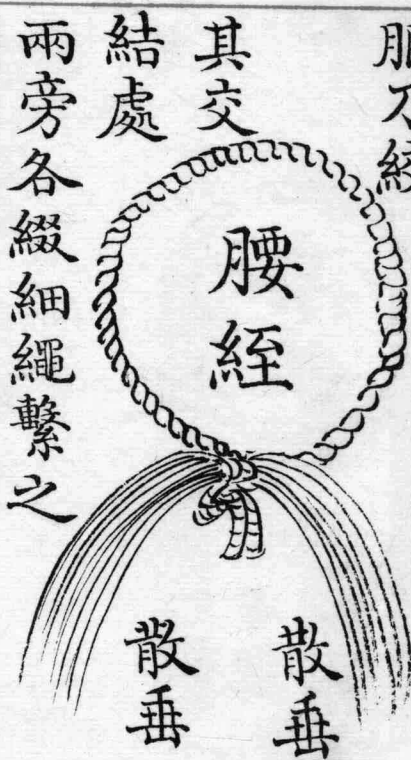 其交
結處
兩旁各綴細繩繫之
腰絰
散垂
散垂